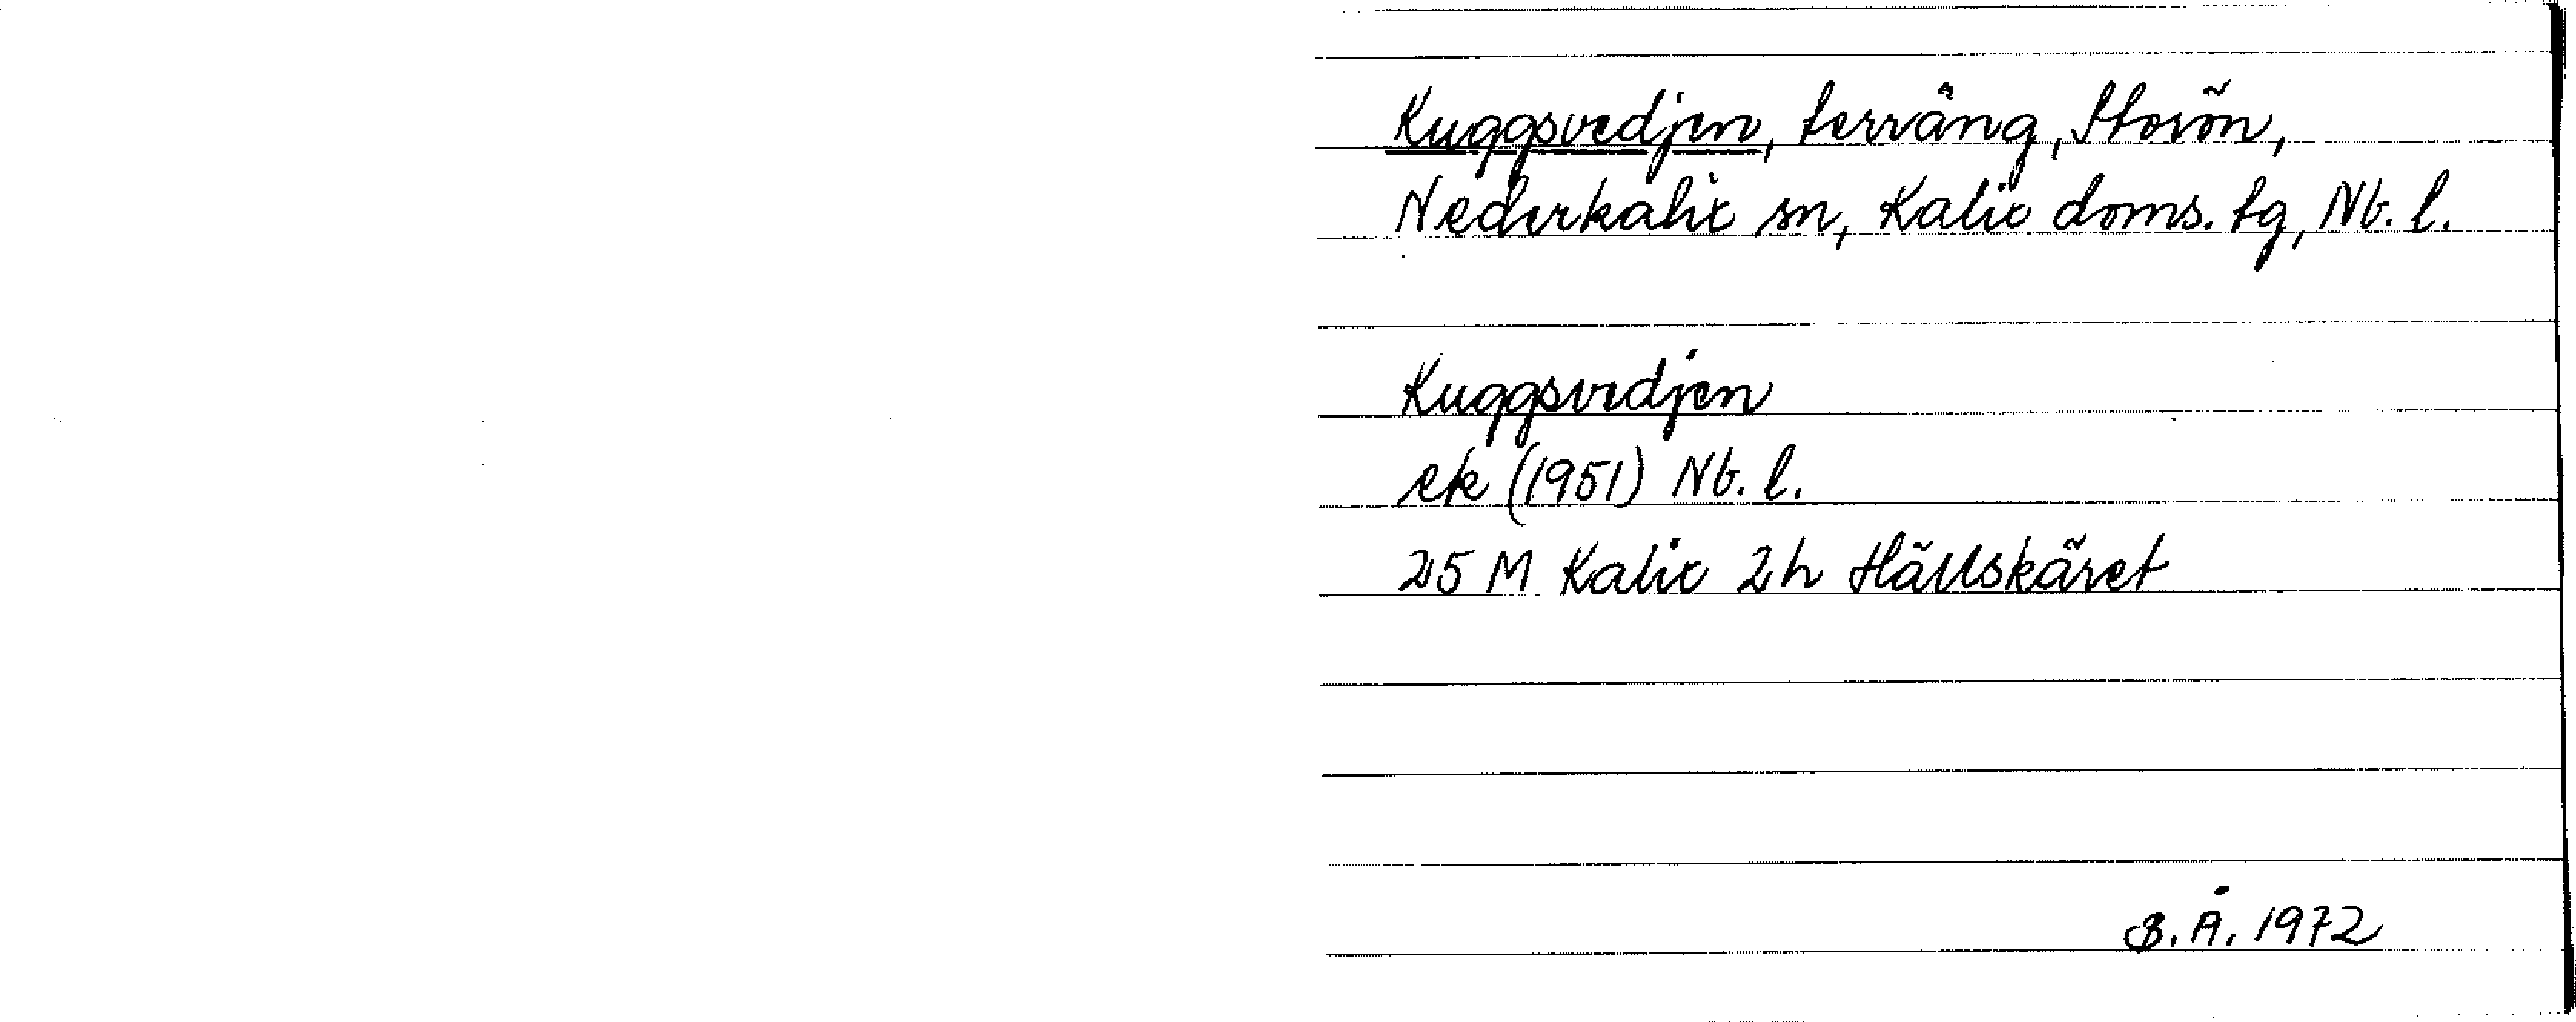 Kuggsvedjen, terräng, Storön,
Nederkalix sn, Kalix doms. tg, Nb. l.
Kuggsvedjen
ek (1951) Nb. l.
25 M Kalix 2h Hällskäret
B.Å. 1972